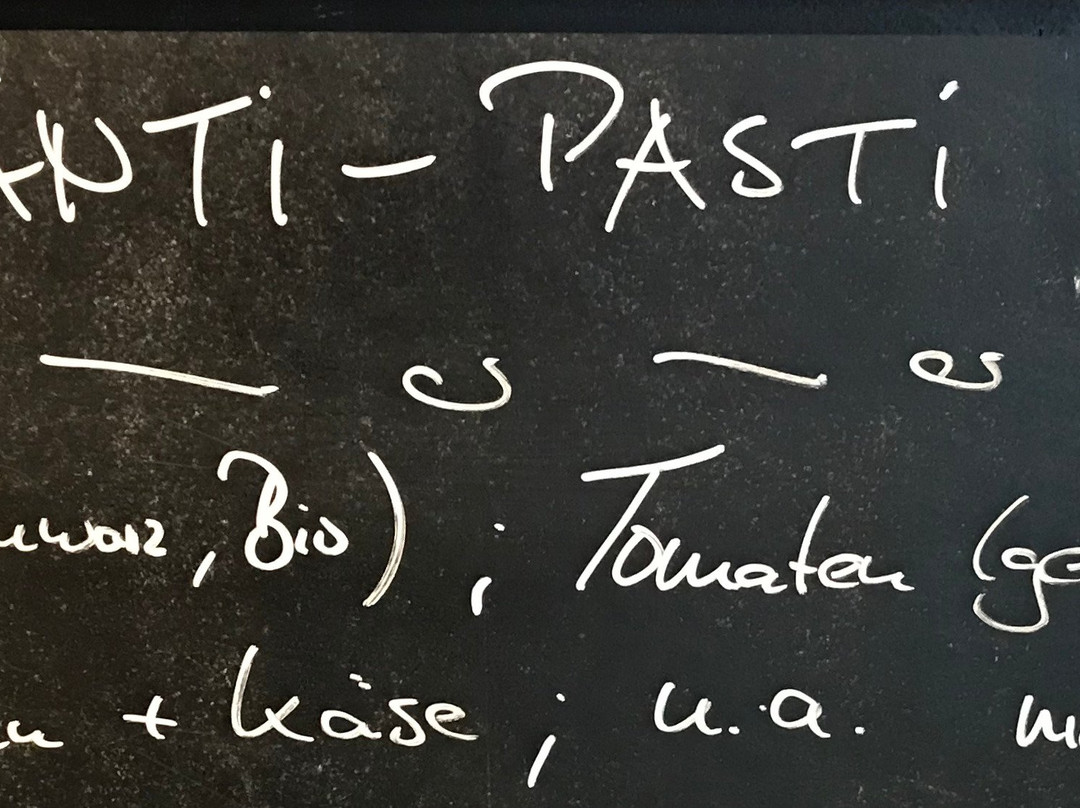 ANTi - PASTi
, Bio) ; Tomaten (ge
+ Käse ; u.a.